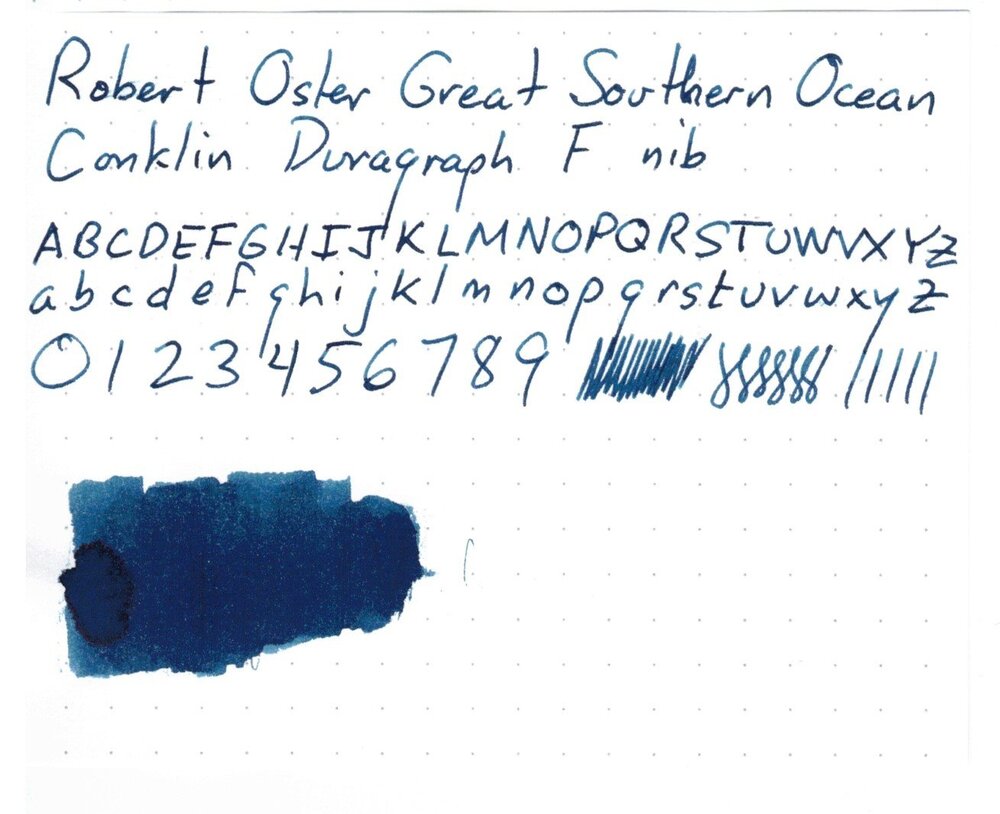 Robert Oster Great Southern Ocean
Conklin Duragraph F nib
ABCDEFGHIJKLMNOPQRSTUWVXYZ
a b c d e f g h i j k l m n o p q r s t u v w x y z
0 1 2 3 4 5 6 7 8 9